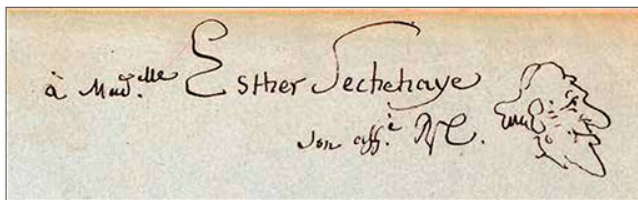 à Mad.lle Esther Sechehaye
son aff.é